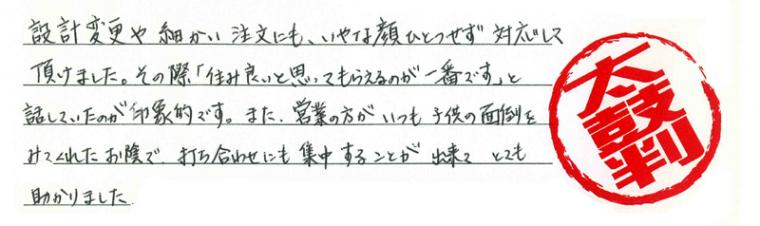 設計変更や細かい注文にも、いやな顔ひとつせず対応して
頂けました。その際「住み良いと思ってもらえるのが一番です」と
話していたのが印象的です。また、営業の方がいつも子供の面倒を
みてくれたお陰で、打ち合わせにも集中することが出来てとても
助かりました
太鼓判